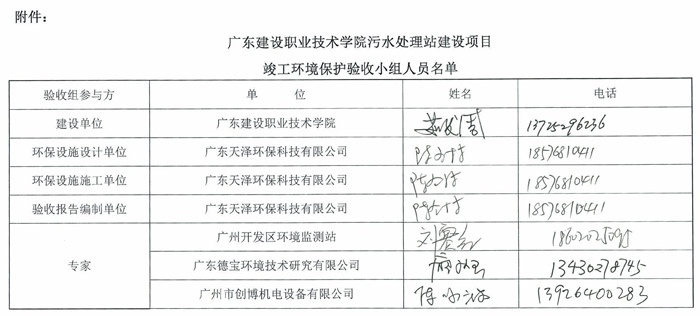 附件：
广东建设职业技术学院污水处理站建设项目
竣工环境保护验收小组人员名单
验收组参与方 单 位 姓名 电话
建设单位 广东建设职业技术学院 13725296236
环保设施设计单位 广东天泽环保科技有限公司 18576810411
环保设施施工单位 广东天泽环保科技有限公司 18576810411
验收报告编制单位 广东天泽环保科技有限公司 18576810411
专家 广州开发区环境监测站
广东德宝环境技术研究有限公司 13430278745
广州市创博机电设备有限公司 13926400283